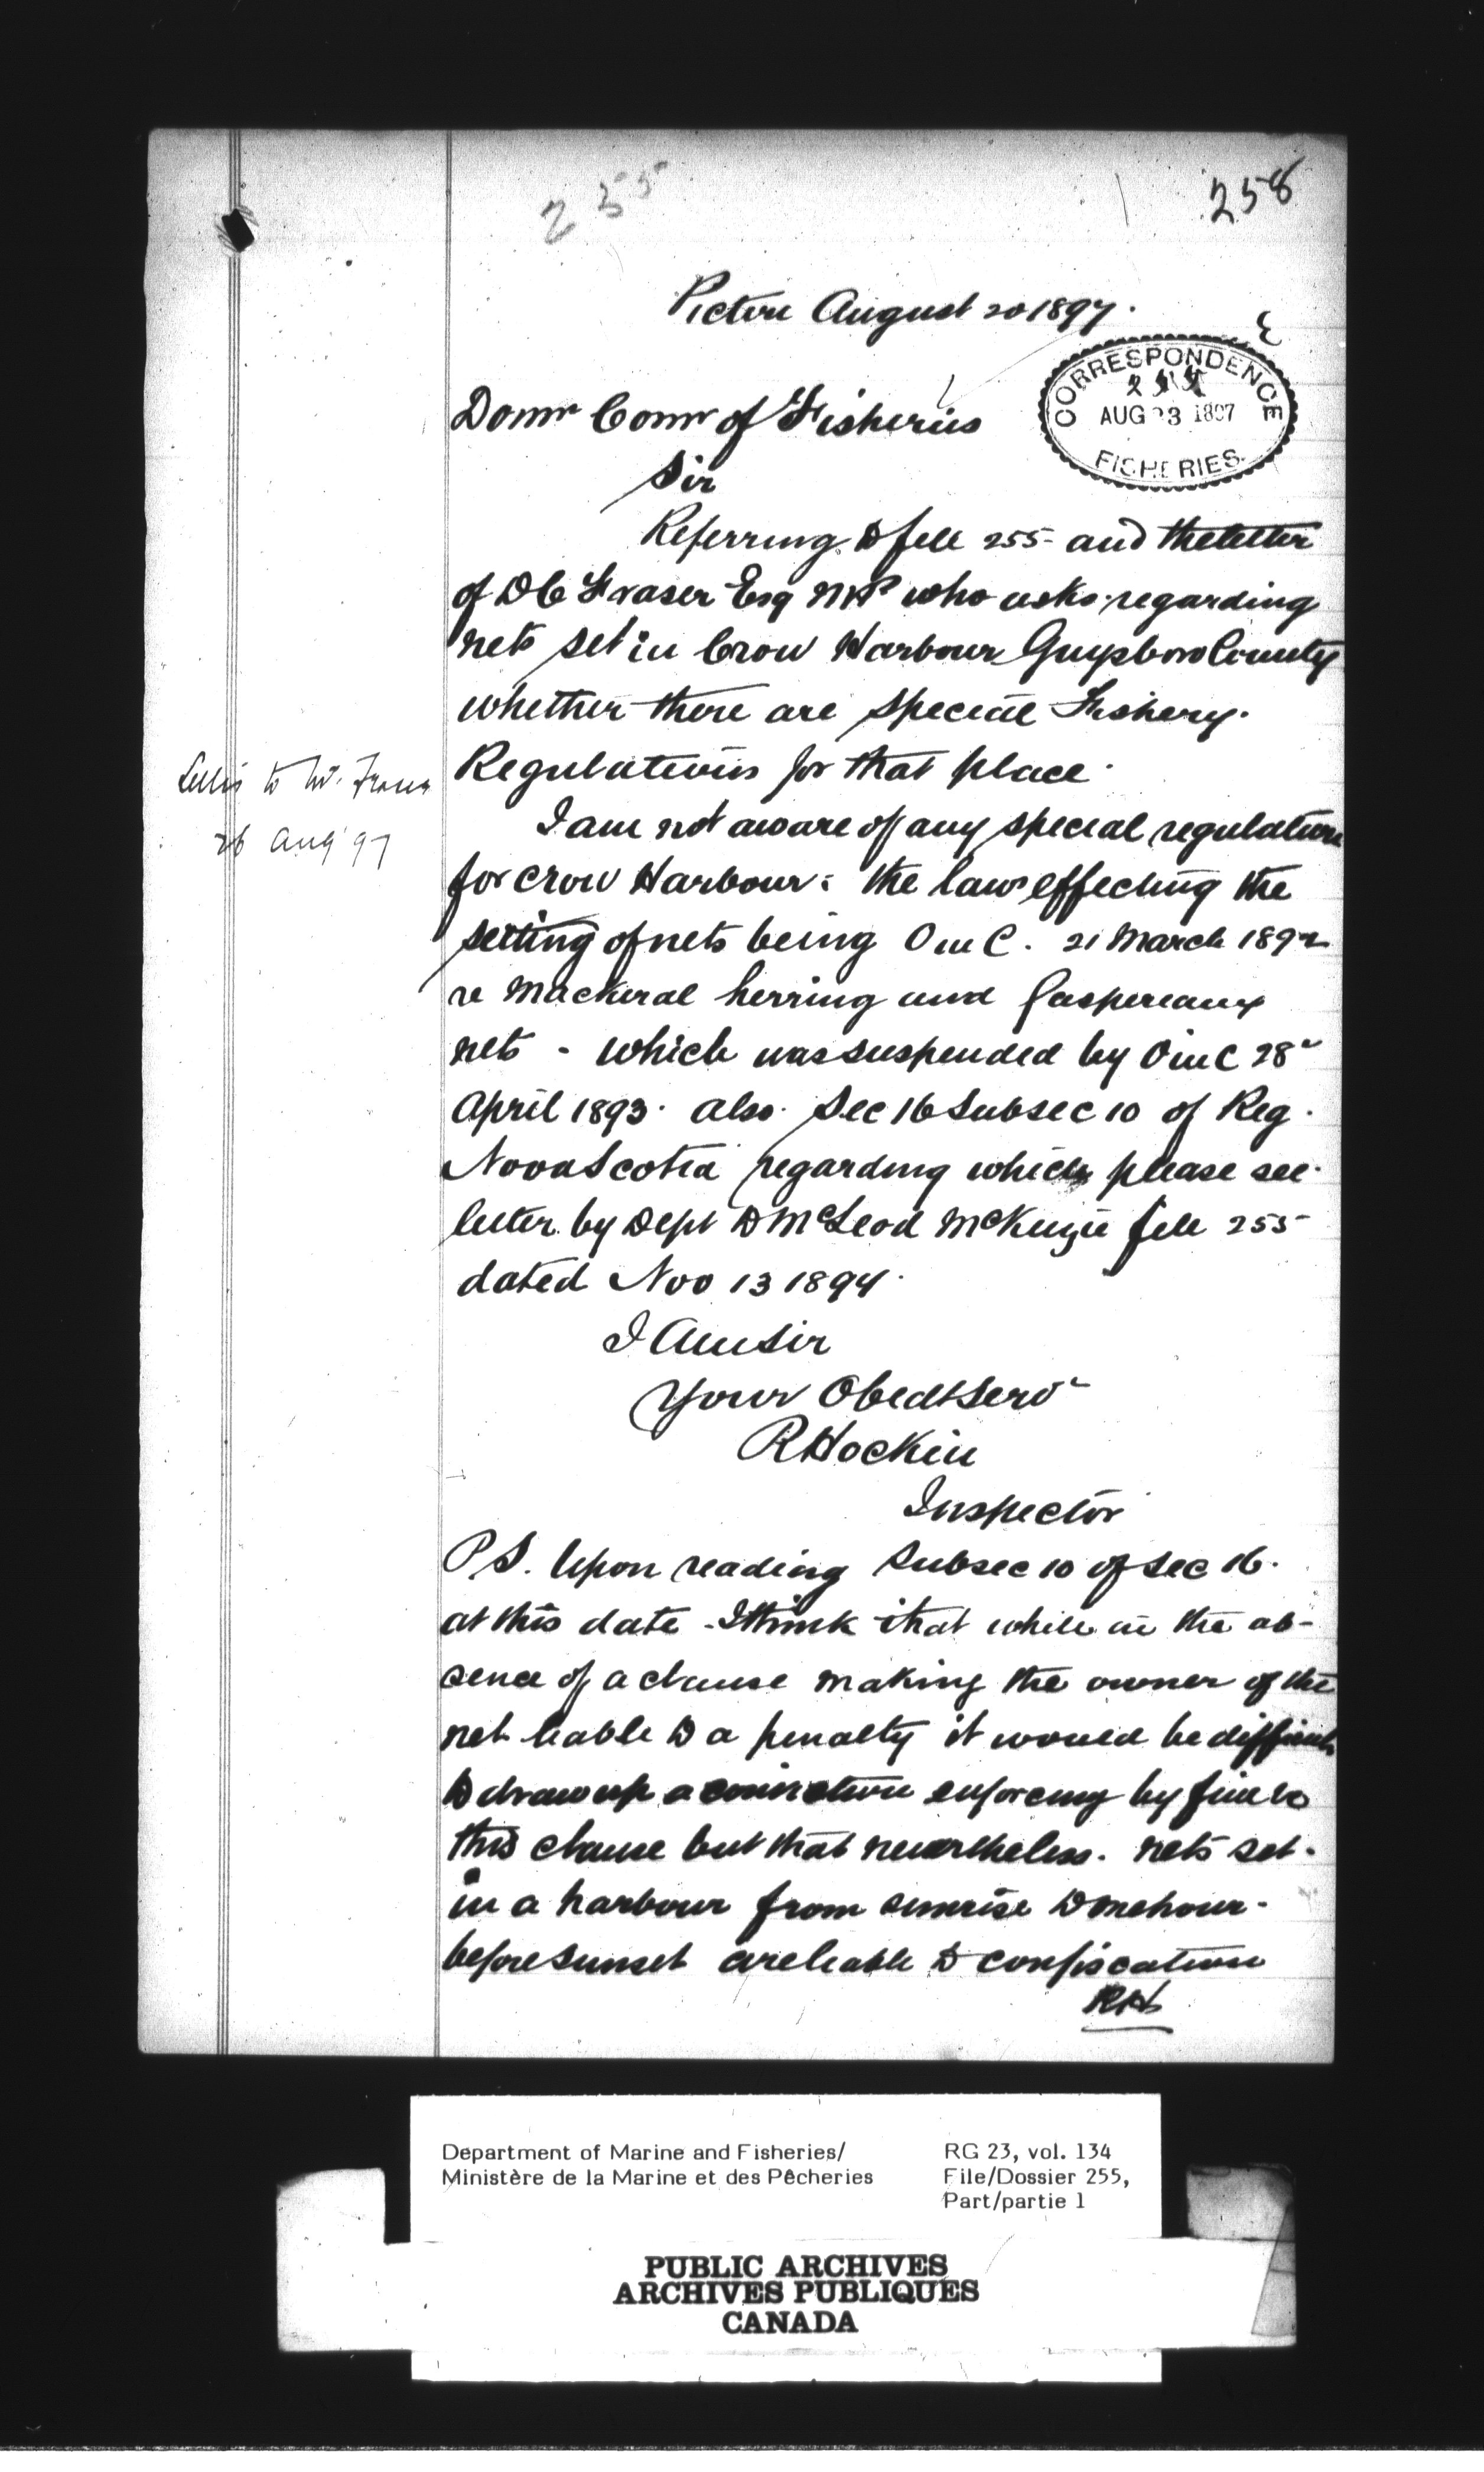 255
258
Pictou August 20 1897.
CORRESPONDENCE
AUG 23 1897
FISHERIES
Domn Comr of Fisheries
Sir
Referring to file 255 and the letter
of D C Fraser Esq MP who asks regarding
nets set in Crow Harbour Guysboro County
whether there are special Fishery
Regulations for that place.
to Mr. Fraser
26 Aug 97
I am not aware of any special regulation
for Crow Harbour: the law effecting the
setting of nets being O in C. 21 March 1892
re Mackeral herring and Gaspereaux
nets - which was suspended by O in C 28"
April 1893. also Sec 16 Subsec 10 of Reg.
Nova Scotia regarding which please see
letter by Dept to McLeod McKenzie file 255
dated Nov 13 1894.
I Am Sir
Your Obedt Servt
R Hockin
Inspector
P S. Upon reading Subsec 10 of Sec 16.
at this date - I think that while in the ab-
sence of a clause making the owner of the
net liable to a penalty it would be difficult
to draw up a conviction enforcing by fine
this clause but that nevertheless. nets set.
in a harbour from sunrise to one hour
before sunset are liable to confiscation
RH
Department of Marine and Fisheries/
Ministère de la Marine et des Pêcheries
RG 23, vol. 134
File/Dossier 255,
Part/partie 1
PUBLIC ARCHIVES
ARCHIVES PUBLIQUES
CANADA